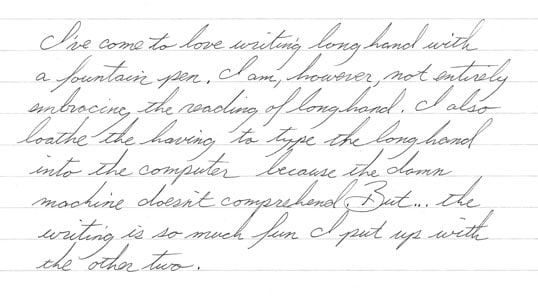 I've come to love writing long hand with
a fountain pen. I am, however, not entirely
embracing the reading of longhand. I also
loathe the having to type the longhand
into the computer because the damn
machine doesn't comprehend. But... the
writing is so much fun I put up with
the other two.